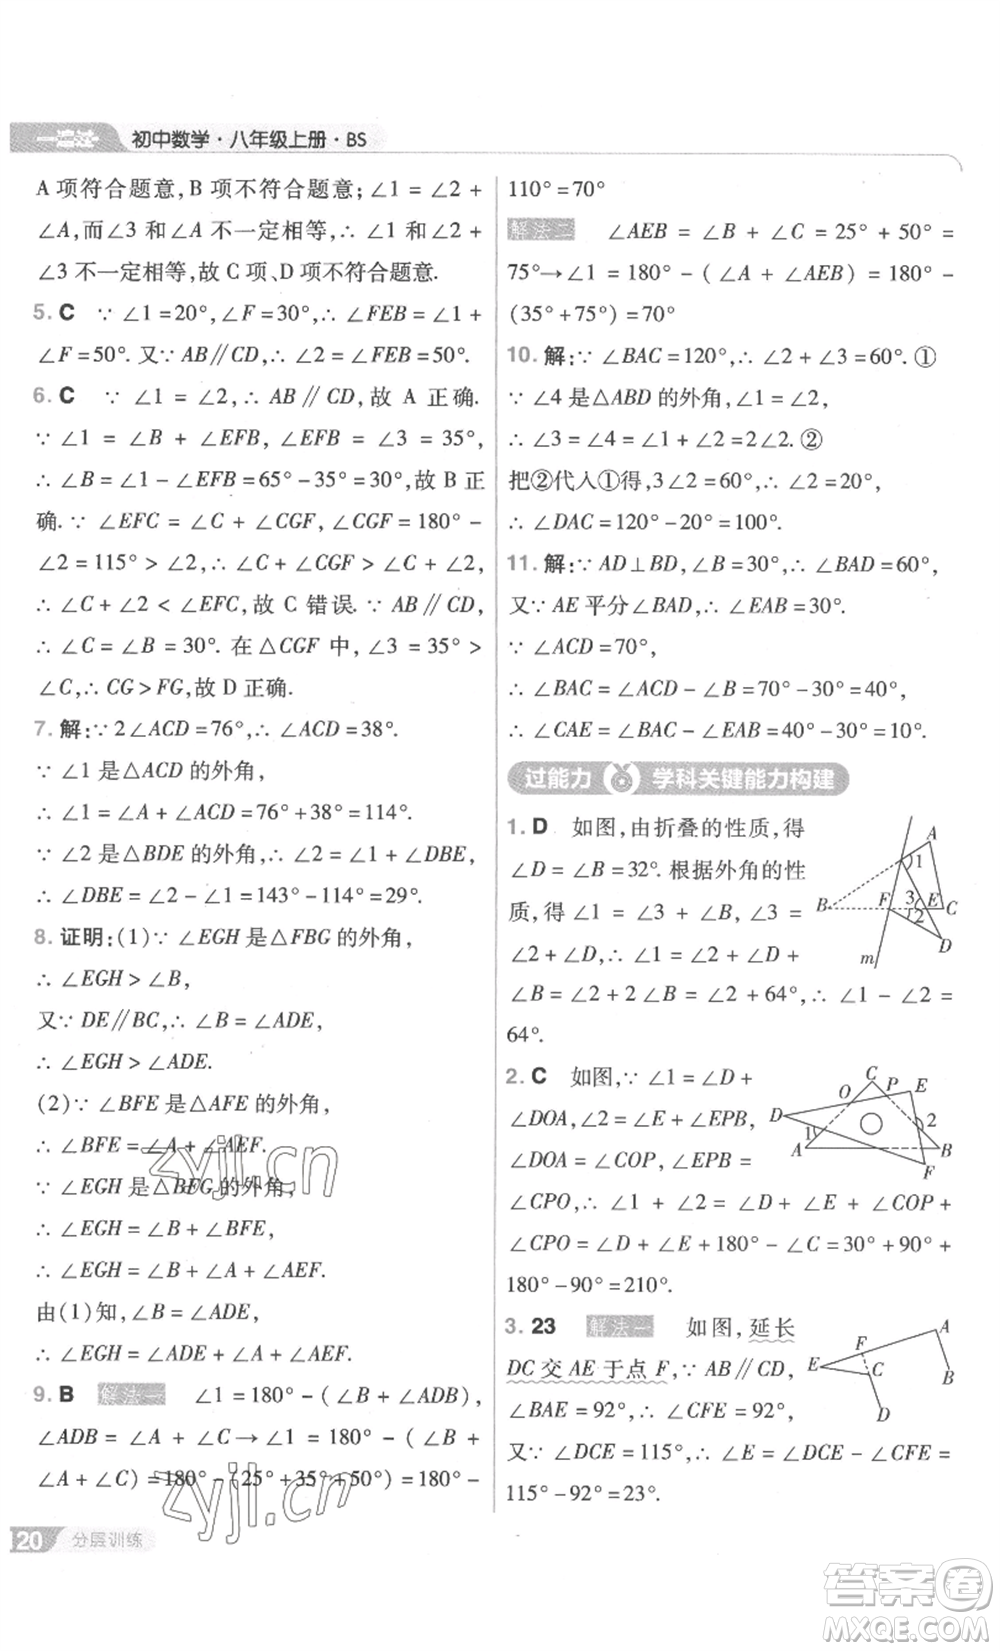 一遍过
初中数学·八年级上册·BS
A 项符合题意,B 项不符合题意;∠1 = ∠2 +
∠A,而∠3 和∠A 不一定相等,∴ ∠1 和∠2 +
∠3 不一定相等,故 C 项、D 项不符合题意.
5. C ∵ ∠1 = 20°,∠F = 30°,∴ ∠FEB = ∠1 +
∠F = 50°. 又∵ AB∥CD,∴ ∠2 = ∠FEB = 50°.
6. C ∵ ∠1 = ∠2,∴ AB∥CD,故 A 正确.
∵ ∠1 = ∠B + ∠EFB,∠EFB = ∠3 = 35°,
∴ ∠B = ∠1 - ∠EFB = 65° - 35° = 30°,故 B 正
确. ∵ ∠EFC = ∠C + ∠CGF,∠CGF = 180° -
∠2 = 115° > ∠2,∴ ∠C + ∠CGF > ∠C + ∠2,
∴ ∠C + ∠2 < ∠EFC,故 C 错误. ∵ AB∥CD,
∴ ∠C = ∠B = 30°. 在△CGF 中,∠3 = 35° >
∠C,∴ CG > FG,故 D 正确.
7. 解:∵ 2∠ACD = 76°,∴ ∠ACD = 38°.
∵ ∠1 是△ACD 的外角,
∴ ∠1 = ∠A + ∠ACD = 76° + 38° = 114°.
∵ ∠2 是△BDE 的外角,∴ ∠2 = ∠1 + ∠DBE,
∴ ∠DBE = ∠2 - ∠1 = 143° - 114° = 29°.
8. 证明:(1)∵ ∠EGH 是△FBG 的外角,
∴ ∠EGH > ∠B,
又∵ DE∥BC,∴ ∠B = ∠ADE,
∴ ∠EGH > ∠ADE.
(2)∵ ∠BFE 是△AFE 的外角,
∴ ∠BFE = ∠A + ∠AEF.
∵ ∠EGH 是△BFG 的外角,
∴ ∠EGH = ∠B + ∠BFE,
∴ ∠EGH = ∠B + ∠A + ∠AEF.
由(1)知,∠B = ∠ADE,
∴ ∠EGH = ∠ADE + ∠A + ∠AEF.
9. B 解法一 ∠1 = 180° - (∠B + ∠ADB),
∠ADB = ∠A + ∠C → ∠1 = 180° - (∠B +
∠A + ∠C) = 180° - (25° + 35° + 50°) = 180° -
110° = 70°
解法二 ∠AEB = ∠B + ∠C = 25° + 50° =
75° → ∠1 = 180° - (∠A + ∠AEB) = 180° -
(35° + 75°) = 70°
10. 解:∵ ∠BAC = 120°,∴ ∠2 + ∠3 = 60°. ①
∵ ∠4 是△ABD 的外角,∠1 = ∠2,
∴ ∠3 = ∠4 = ∠1 + ∠2 = 2∠2. ②
把②代入①得,3∠2 = 60°,∴ ∠2 = 20°,
∴ ∠DAC = 120° - 20° = 100°.
11. 解:∵ AD⊥BD,∠B = 30°,∴ ∠BAD = 60°,
又∵ AE 平分∠BAD,∴ ∠EAB = 30°.
∵ ∠ACD = 70°,
∴ ∠BAC = ∠ACD - ∠B = 70° - 30° = 40°,
∴ ∠CAE = ∠BAC - ∠EAB = 40° - 30° = 10°.
过能力 学科关键能力构建
1. D 如图,由折叠的性质,得
∠D = ∠B = 32°. 根据外角的性
质,得∠1 = ∠3 + ∠B,∠3 =
∠2 + ∠D,∴ ∠1 = ∠2 + ∠D +
∠B = ∠2 + 2∠B = ∠2 + 64°,∴ ∠1 - ∠2 =
64°.
A
1
B
F
3
E
C
2
D
m
2. C 如图,∵ ∠1 = ∠D +
∠DOA,∠2 = ∠E + ∠EPB,
∠DOA = ∠COP,∠EPB =
∠CPO,∴ ∠1 + ∠2 = ∠D + ∠E + ∠COP +
∠CPO = ∠D + ∠E + 180° - ∠C = 30° + 90° +
180° - 90° = 210°.
C
O
P
E
D
1
2
A
B
F
3. 23 解法一 如图,延长
DC 交 AE 于点 F,∵ AB∥CD,
∠BAE = 92°,∴ ∠CFE = 92°,
又∵ ∠DCE = 115°,∴ ∠E = ∠DCE - ∠CFE =
115° - 92° = 23°.
A
F
E
C
B
D
120 分层训练
zyjl.cn
zyjl.cn
答案圈
MXQE.COM